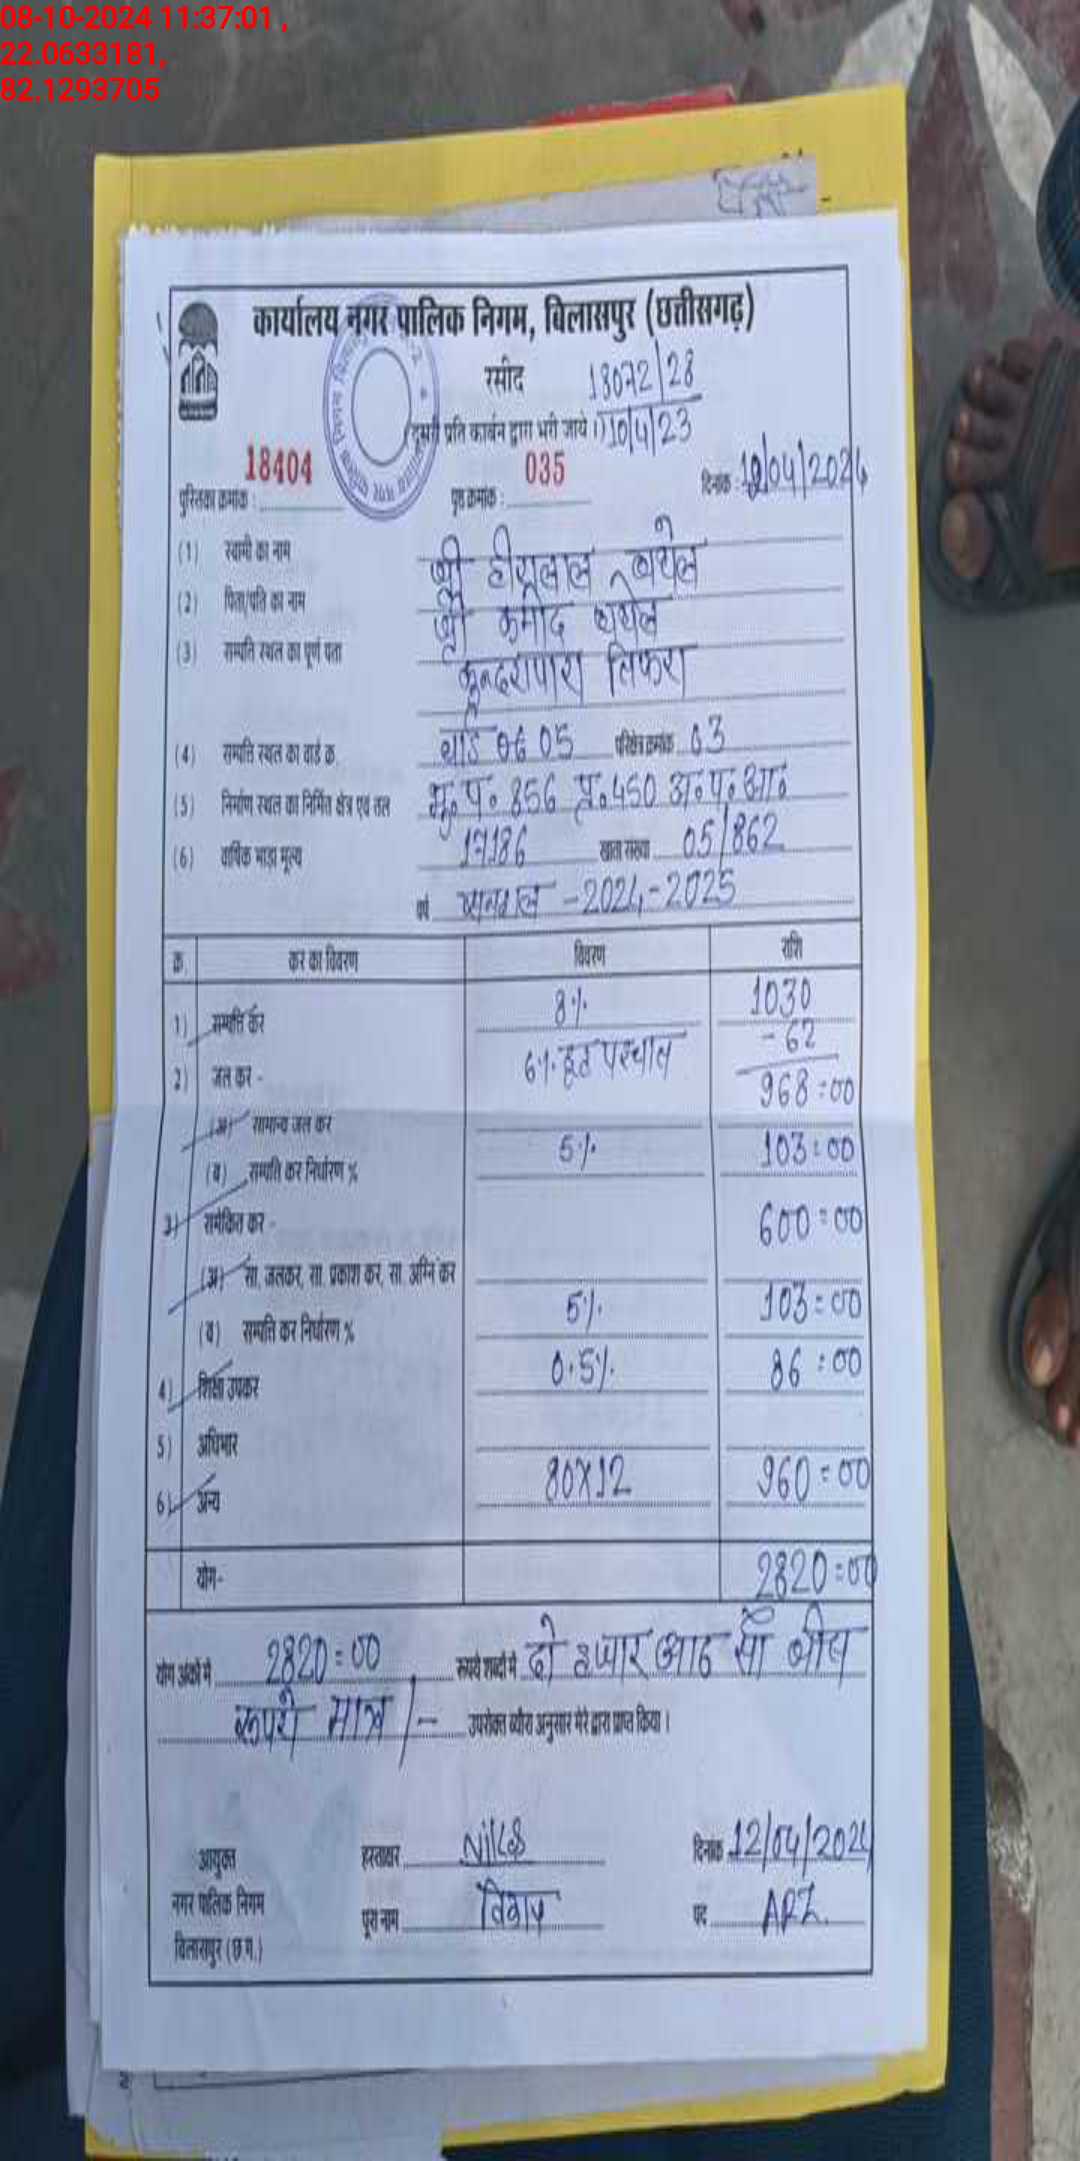 08-10-2024 11:37:01 ,
22.0633181,
82.1293705
कार्यालय नगर पालिक निगम, बिलासपुर (छत्तीसगढ़)
रसीद 18072/28
(दूसरी प्रति कार्बन द्वारा भरी जाये।) 10/4/23
पुस्तिका क्रमांक : 18404 पृष्ठ क्रमांक : 035 दिनांक : 12/04/2024
(1) स्वामी का नाम श्री हीरालाल बघेल
(2) पिता/पति का नाम श्री कमोद बघेल
(3) सम्पत्ति स्थल का पूर्ण पता कुन्दरापारा तिफरा
(4) सम्पत्ति स्थल का वार्ड क्र. वार्ड 06 05 परिक्षेत्र क्रमांक 03
(5) निर्माण स्थल का निर्मित क्षेत्र एवं तल भू० प० 856 प्र० 450 अ० प० आ०
(6) वार्षिक भाड़ा मूल्य 17186 खाता संख्या 05/862
वर्ष -2024-2025
क्र. कर का विवरण विवरण राशि
1) सम्पत्ति कर 8% 1030
-62
2) जल कर - 6% छूट पश्चात 968=00
(अ) सामान्य जल कर
(ब) सम्पत्ति कर निर्धारण % 5% 103=00
3) समेकित कर - 600=00
(अ) सा. जलकर, सा. प्रकाश कर, सा. अग्नि कर
(ब) सम्पत्ति कर निर्धारण % 5% 103=00
4) शिक्षा उपकर 0.5% 86=00
5) अधिभार
6) अन्य 80X12 960=00
योग- 2820=00
योग अंकों में 2820=00 रूपये शब्दों में दो हजार आठ सौ बीस
रूपये मात्र /- उपरोक्त ब्यौरा अनुसार मेरे द्वारा प्राप्त किया।
आयुक्त हस्ताक्षर दिनांक 12/04/2024
नगर पालिक निगम पूरा नाम पद
बिलासपुर (छ.ग.)